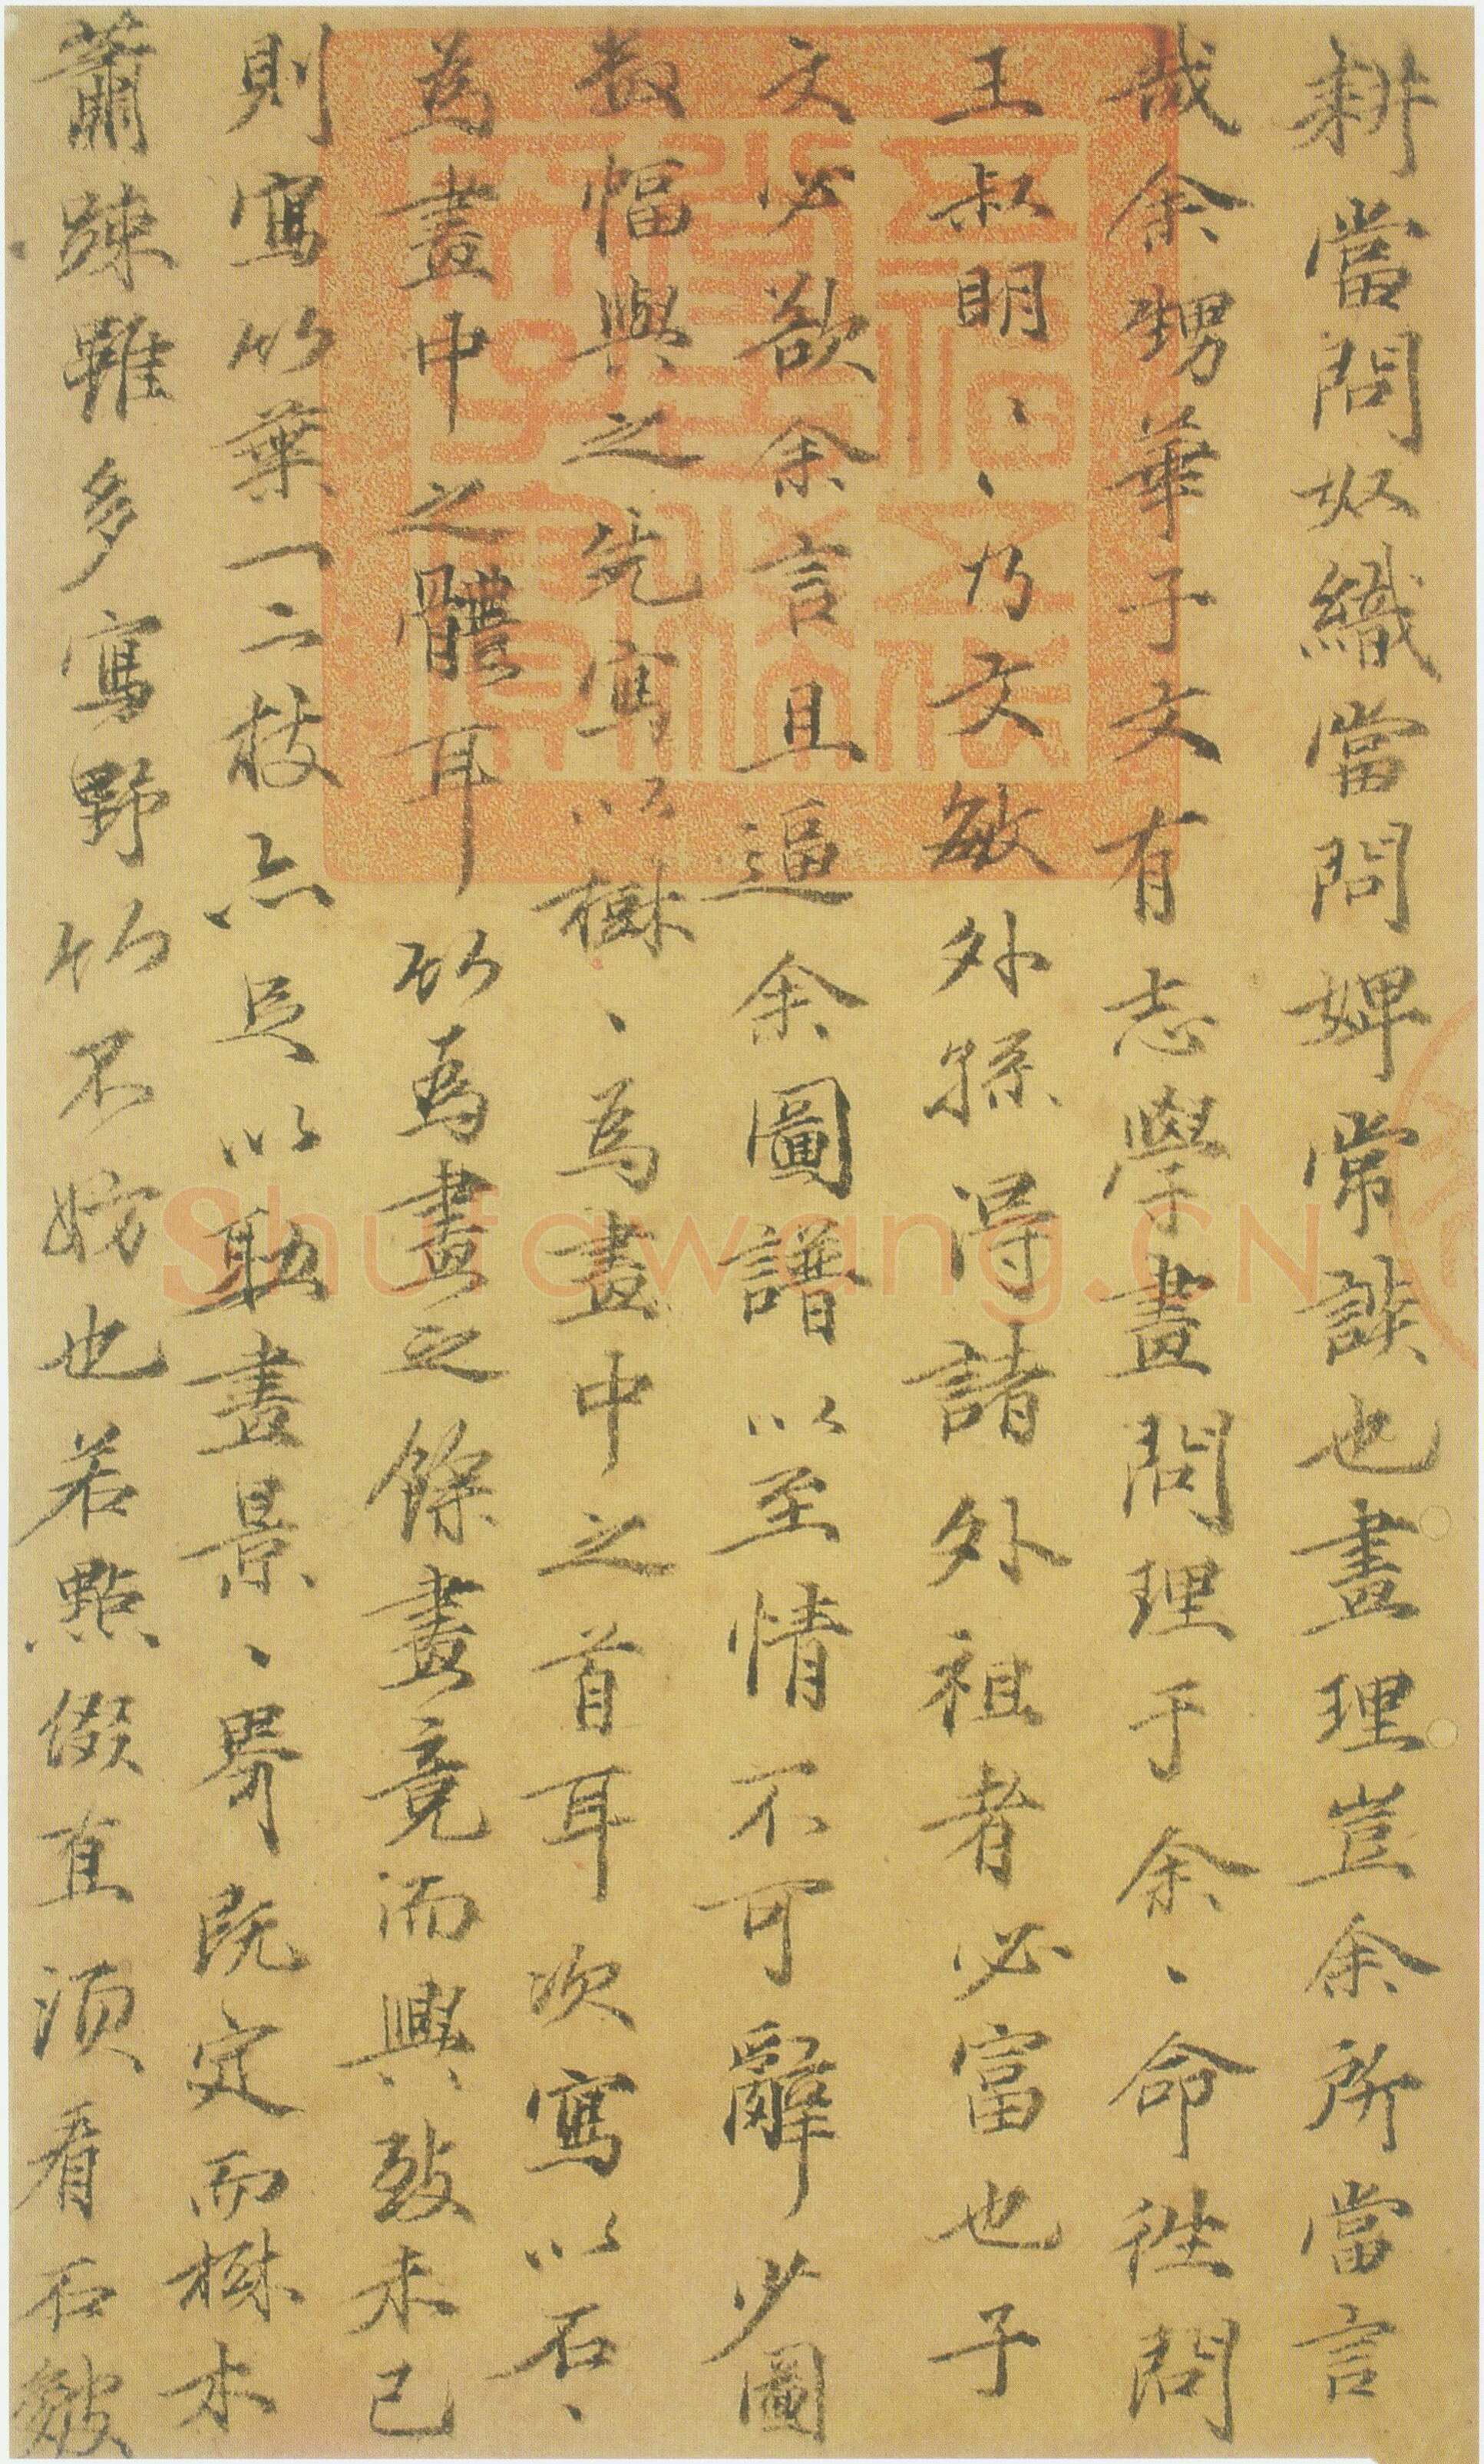 耕當問奴織當問婢常談也畫理豈余所當言
哉余甥華子文有志學畫問理于余、命往問
王叔明、、乃文敏外孫得諸外祖者必富也子
文必欲余言且逼余圖譜以至情不可辭少圖
數幅與之先寫以樹、為畫中之首耳次寫以石、
為畫中之體耳竹為畫之餘畫竟而興致未已
則寫竹葉一二枝亦足以助畫景、界既定而樹木
蕭踈雖多寫野竹不妨也若點綴直須看石皴
Shufawang.CN